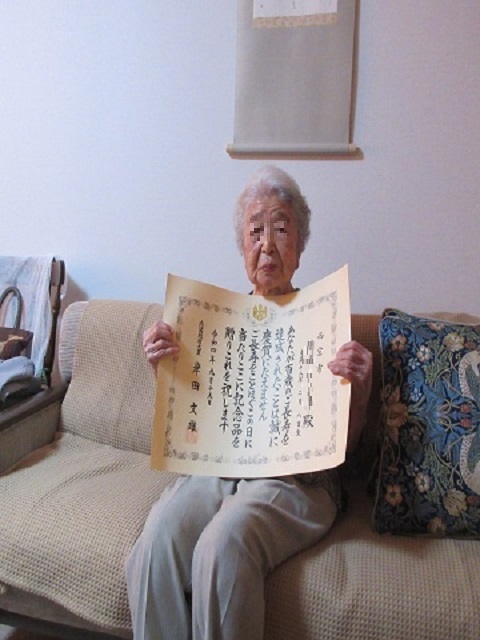 殿
あなたが百歳のご長寿を
達成されたことは誠に
慶賀にたえません
ご長寿をことほぐこの日に
当たりここに記念品を
贈りこれを祝します
令和四年九月十五日
内閣総理大臣 岸田文雄